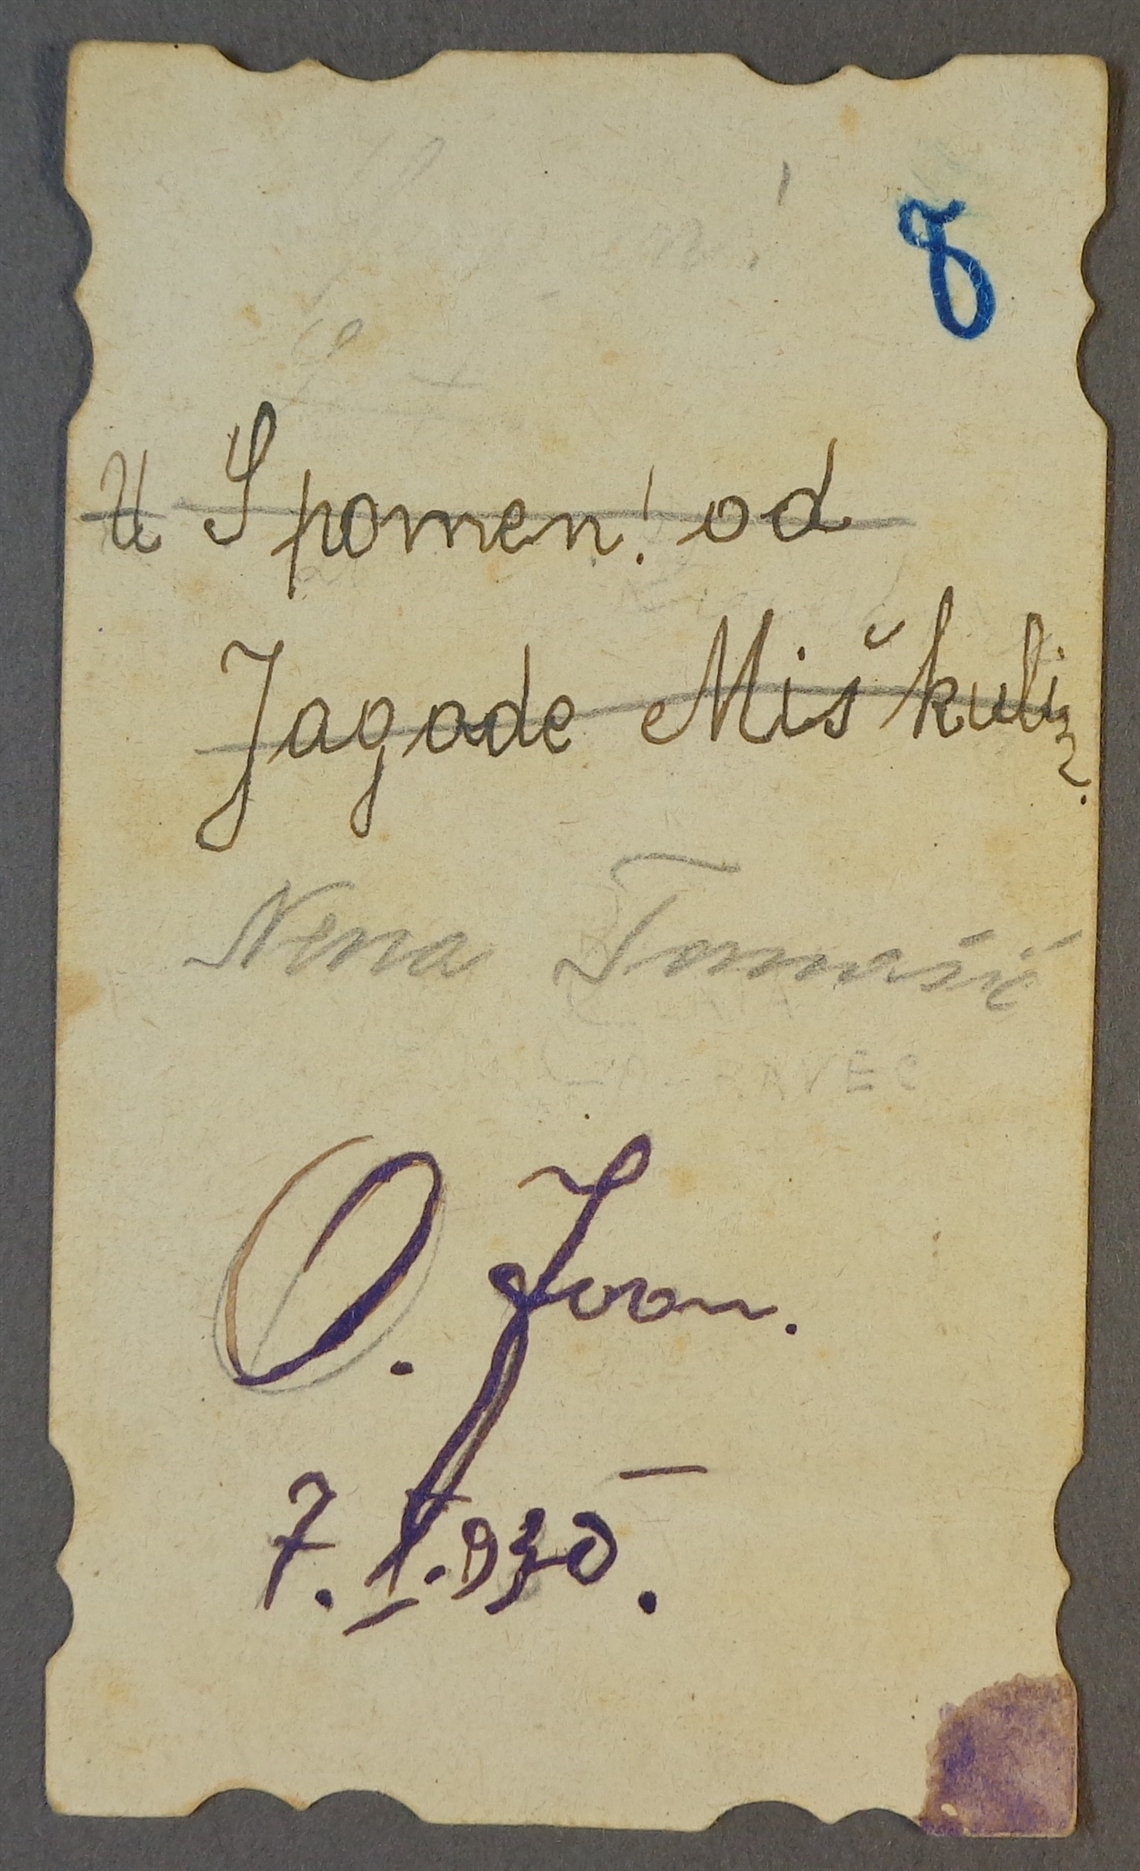 8
U Spomen! od
Jagade Miškulin.
Nena Tomašić
O. Ivan.
7. I. 930.